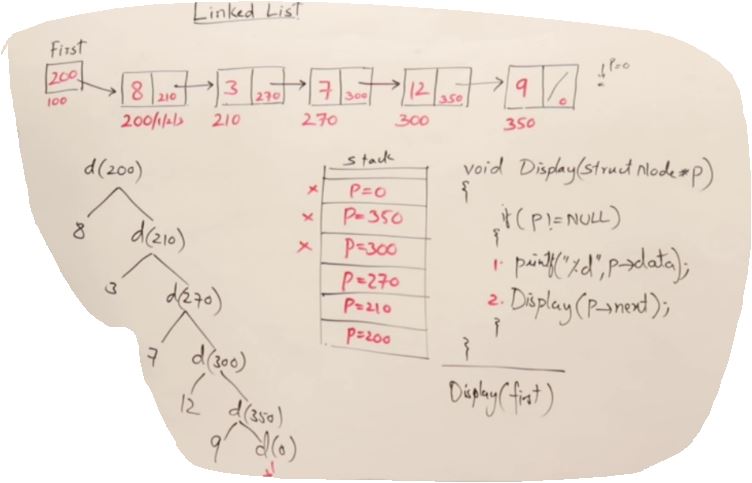 Linked List
First
200
100
8 210
3 270
7 300
12 350
9 0
P=0
210
270
300
350
d(200)
8 d(210)
3 d(270)
7 d(300)
12 d(350)
9 d(0)
stack
x P=0
x P=350
x P=300
P=270
P=210
P=200
void Display(struct Node *p)
{
if( p!=NULL)
{
1. printf("%d",p→data);
2. Display(p→next);
}
}
Display(first)